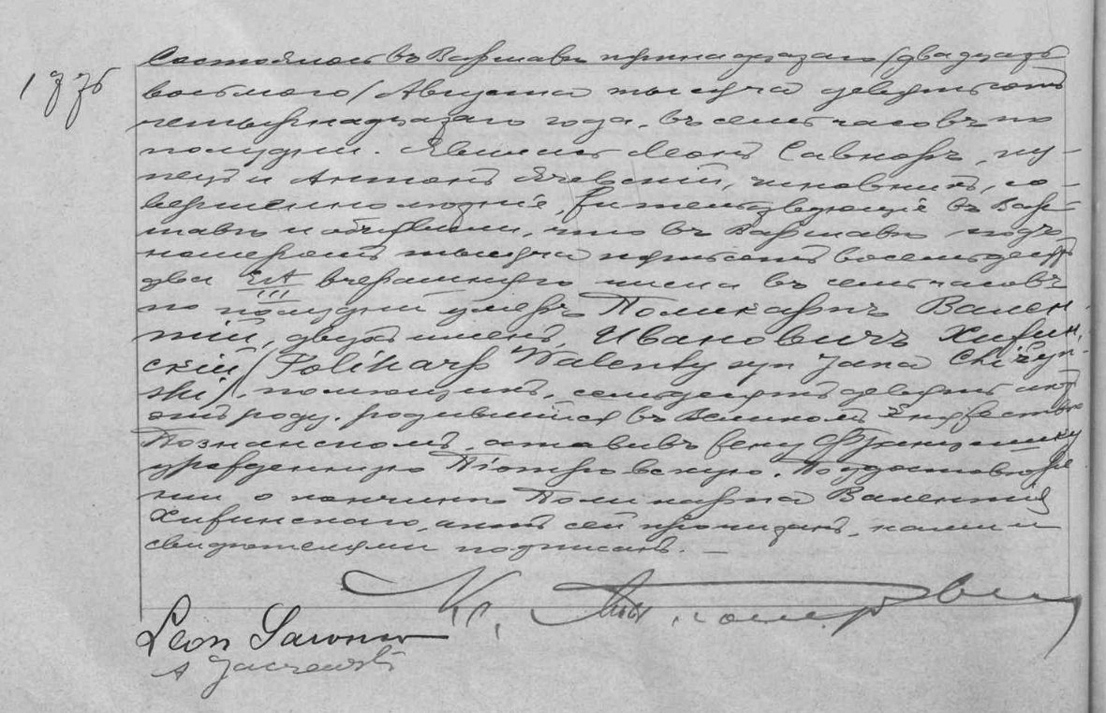 1776
Состоялось въ Варшавѣ тринадцатаго /двадцать
восьмого/ Августа тысяча девятьсотъ
четырнадцатаго года, въ семь часовъ по
полудни. Явились Леонъ Савноръ, ку-
пецъ и Антонъ Ячевскій, чиновникъ, со-
вершеннолѣтніе, жительствующіе въ Вар-
шавѣ и объявили, что въ Варшавѣ подъ
номеромъ тысяча пятьсотъ восемьдесятъ
два вчерашняго числа въ семь часовъ
по полудни умеръ Поликарпъ Вален-
тій, двухъ именъ, Ивановичъ Хижин-
скій /Polikarp Walenty syn Jana Chiżyń-
ski/, семьдесятъ девять лѣтъ
отъ роду, родившійся въ Великомъ Княжествѣ
Познанскомъ, оставивъ жену Францишку
урожденную Піотровскую. По удостовѣре-
ніи о кончинѣ Поликарпа Валентія
Хижинскаго, актъ сей прочитанъ, нами и
свидѣтелями подписанъ. —
Кс.
Leon Sawnor
A Jaczewski